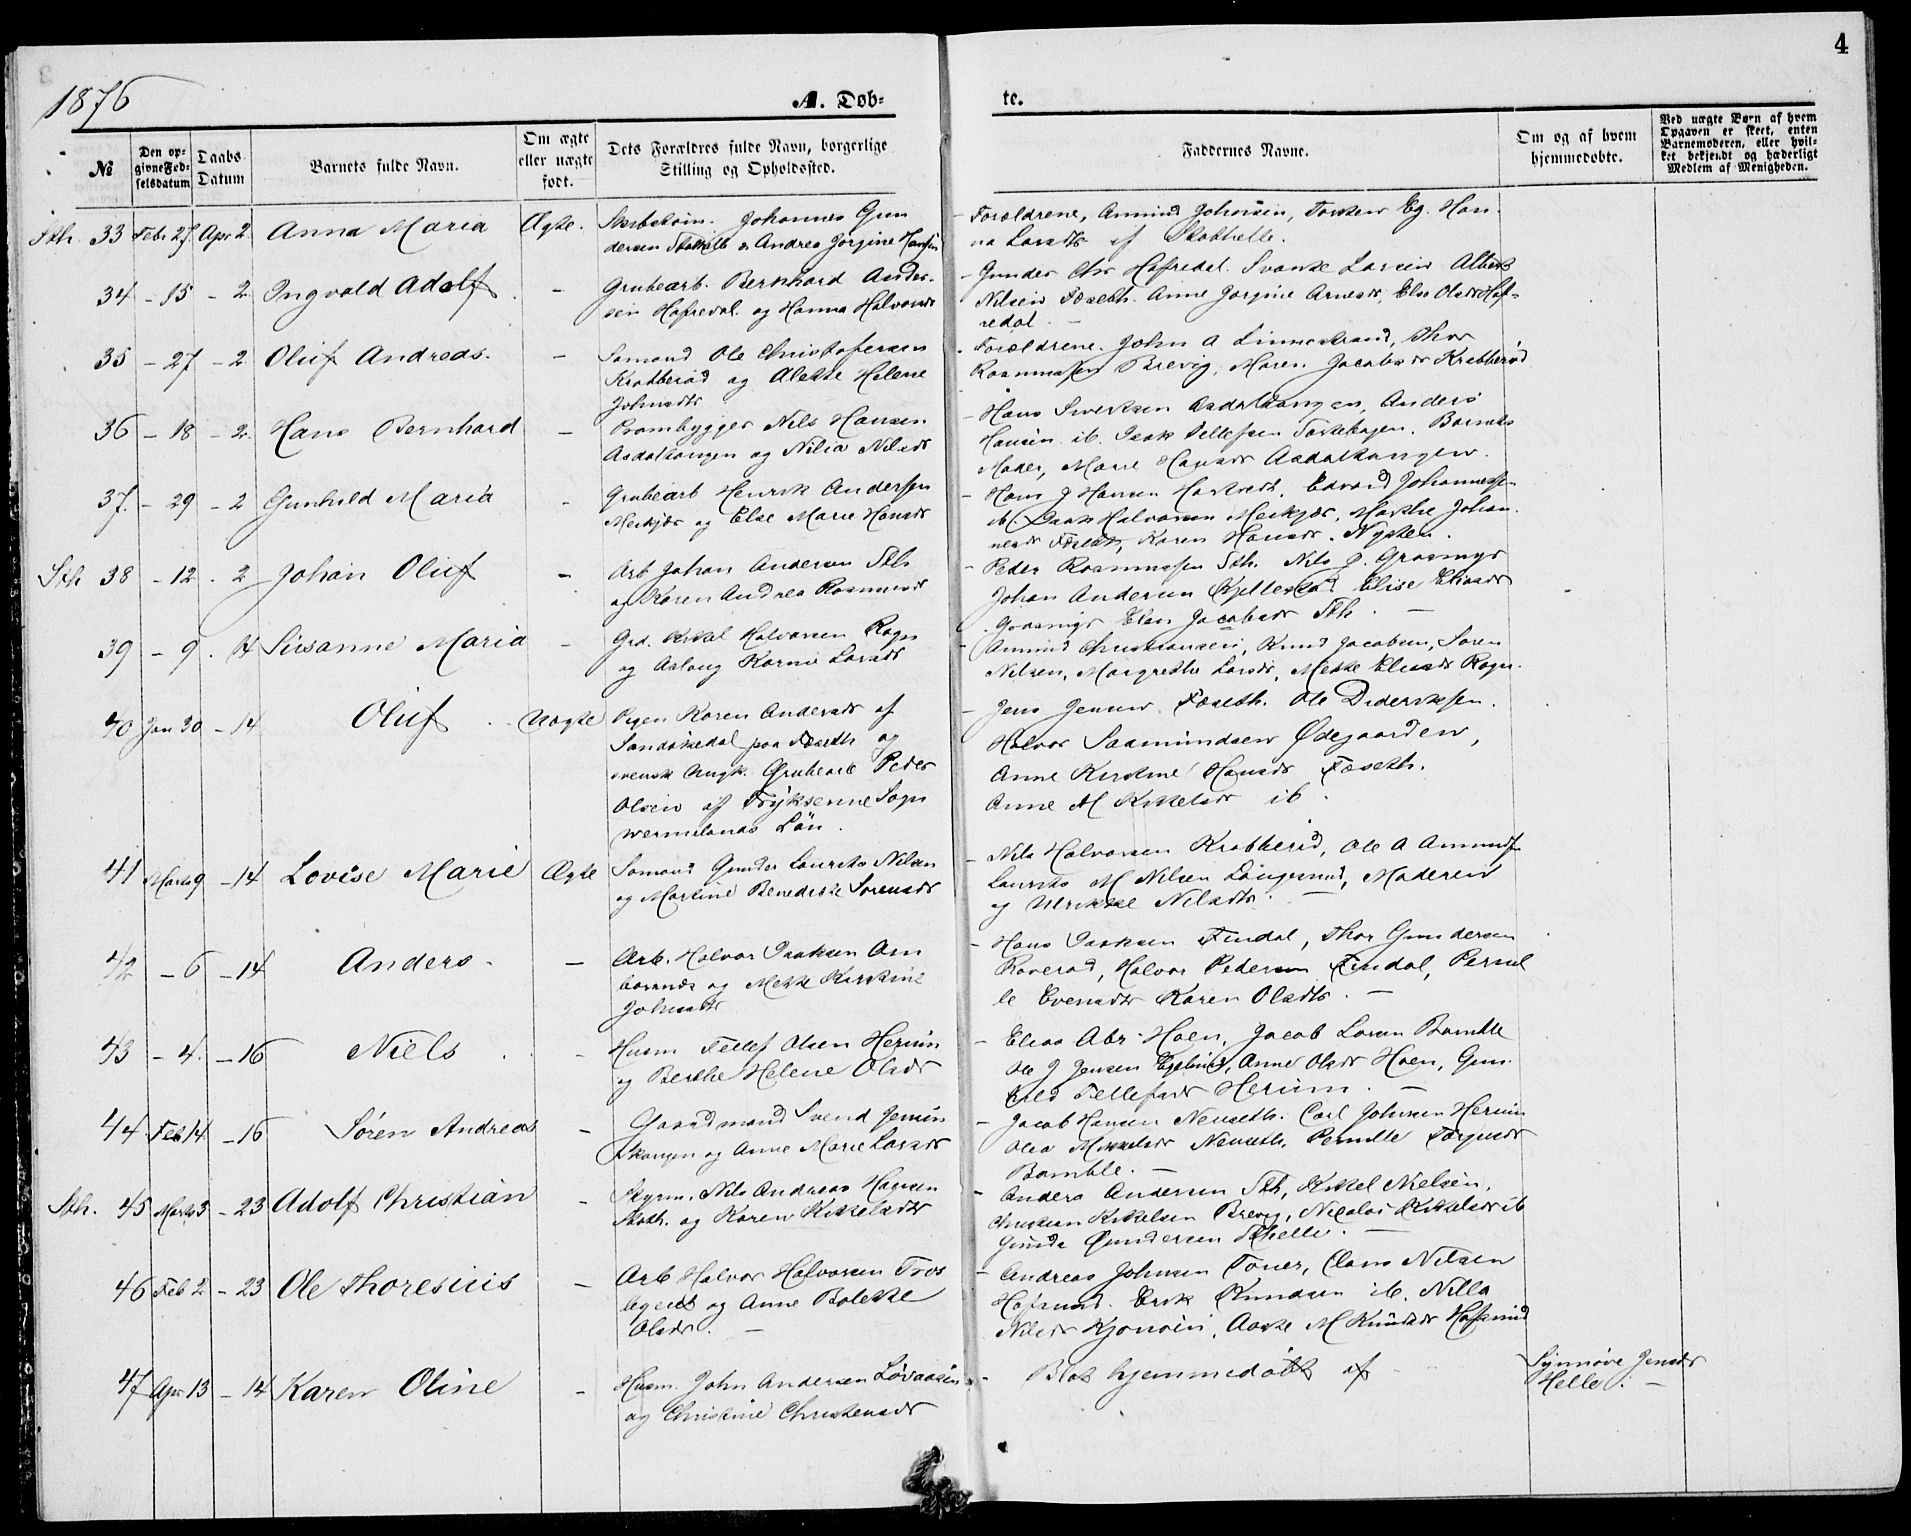 4
1876
A. Døb-
te.
№
Den op-
givne Fød-
selsdatum
Daabs
Datum
Barnets fulde Navn.
Om ægte
eller uægte
født.
Dets Forældres fulde Navn, borgerlige
Stilling og Opholdssted.
Faddernes Navne.
Om og af hvem
hjemmedøbte.
Ved uægte Børn af hvem
Opgaven er skeet, enten
Barnemoderen, eller hvil-
ket bekjendt og hæderligt
Medlem af Menigheden.
Sth. 33 Febr 25 Apr 2 Anna Maria Ægte. Johannes Gun
dersen & Andrea Jorgine
Forældrene, Amund Johnsen, Eg. Han
na Larsdtr af
34 - 15 - 2 Ingvald Adolf - Grubearb. Bernhard Ander-
sen Hafredal og Hanna Halvorsdr
- Gunder Chr Hafredal. Larsen Albert
Nilsen Foseth. Anne Jorgine Arnesdr, Else Olsdr Haf-
redal.
35 - 27 - 2 Oluf Andreas. - Sømand Ole Christofersen
Krabberød og Alette Helene
Johnsdtr
Forældrene. John A Linnestrand, Thor
Rasmussen Brevig, Maren Jacobsdr Krabberød
36 - 18 - 2 Hans Bernhard - Prambygger Nils Hansen
Asdaltangen og Nilia Nilsdr
- Hans Asdaltangen, Anders
Hansen ib. Isak Tellefsen Barnets
Moder, Marie Hansdr Asdaltangen.
37. - 29 - 2 Gunhild Maria - Grubearb Henrik Andersen
og Else Marie Hansdr
- Hans J Hansen Edvard Johannessen
ib. Isak Halvorsen Marthe Johan
nesdr Foseth, Karen Hansdr.
Sth 38 - 12 . 2 Johan Oluf - Arb Johan Andersen Sth
og Karen Andrea Rasmusdr
- Peder Rasmussen Sth. Nils J. Grasmyr
Johan Andersen Elise Eliasdr
Grasmyr Elen Jacobsdr Sth. -
39 - 9 . 14 Susanne Maria - Grd. Kittel Halvorsen Rogn
og Aslaug Karine Larsdr
- Amund Christiansen, Knud Jacobsen, Søren
Nilsen, Margrethe Larsdr, Mette Eliasdr Rogn.
40 Jan 30 - 14 Oluf. Uægte Pigen Karen Andersdr af
Sandøkedal paa Foseth og
svensk Ungk. Grubearb Peder
Olsen af Fryksenne Sogn
Wermelands Län.
- Jens Jensen Foseth. Ole Dideriksen.
Halvor Saamundsen Ødegaarden,
Anne Kirstine Hansdr Foseth.
Anne M Kittelsdr ib.
41 Marts 9 - 14 Lovise Marie Ægte Sømand Gunder Laurits Nilsen
og Martine Benedikte Sørensdr
- Nils Halvorsen Krabberød, Ole A Amundsen
Laurits M Nilsen Langesund, Moderen
og Ulrikke Nilsdtr. -
42 - 6 - 14 Anders. - Arb. Halvor Isaksen
og Mette Kirstine
Johnsdtr
- Hans Isaksen Findal, Thor Gundersen
Halvor Pedersen Findal, Pernil
le Evensdtr Karen Olsdtr. -
43 - 4. - 16 Niels - Husm Tellef Olsen Herum
og Berthe Helene Olsdr
- Elias Abr. Hoen, Jacob Larsen Bamble
Ole J Jensen Anne Olsdr Hoen, Gun
hild Tellefsdr Herum. -
44 Feb 14 - 16 Søren Andreas - Gaardmand Svend Jensen
Skougen og Anne Marie Larsdr
- Jacob Hansen Nenseth. Carl Johnsen Herum
Olea Mikkelsdr Nenseth. Pernille
Bamble. -
Sth. 45 Marts 3 - 23 Adolf Christian - Styrm. Nils Andreas Hansen
Stath. og Karen Kittelsdtr
- Anders Andersen Sth, Kittel Nielsen,
Christian Kittelsen Brevig, Nicolai Kittelsdr ib
Gunda Gundersen
46 Feb 2 - 23 Ole Thoresius - Arb Halvor Halvorsen Tros
og Anne Bolette
Olsdr. -
- Andreas Johnsen Claus Nilsen
Hafsund. Erik Knudsen ib. Nilla
Nilsdr Aaste M Knudsdr Hafsund
47 Apr 13 - 14 Karen Oline - Husm. John Andersen Løvaasen
og Christine Christensdr
- Blot hjemmedøbt af
Synnøve Jensdr
Helle. -